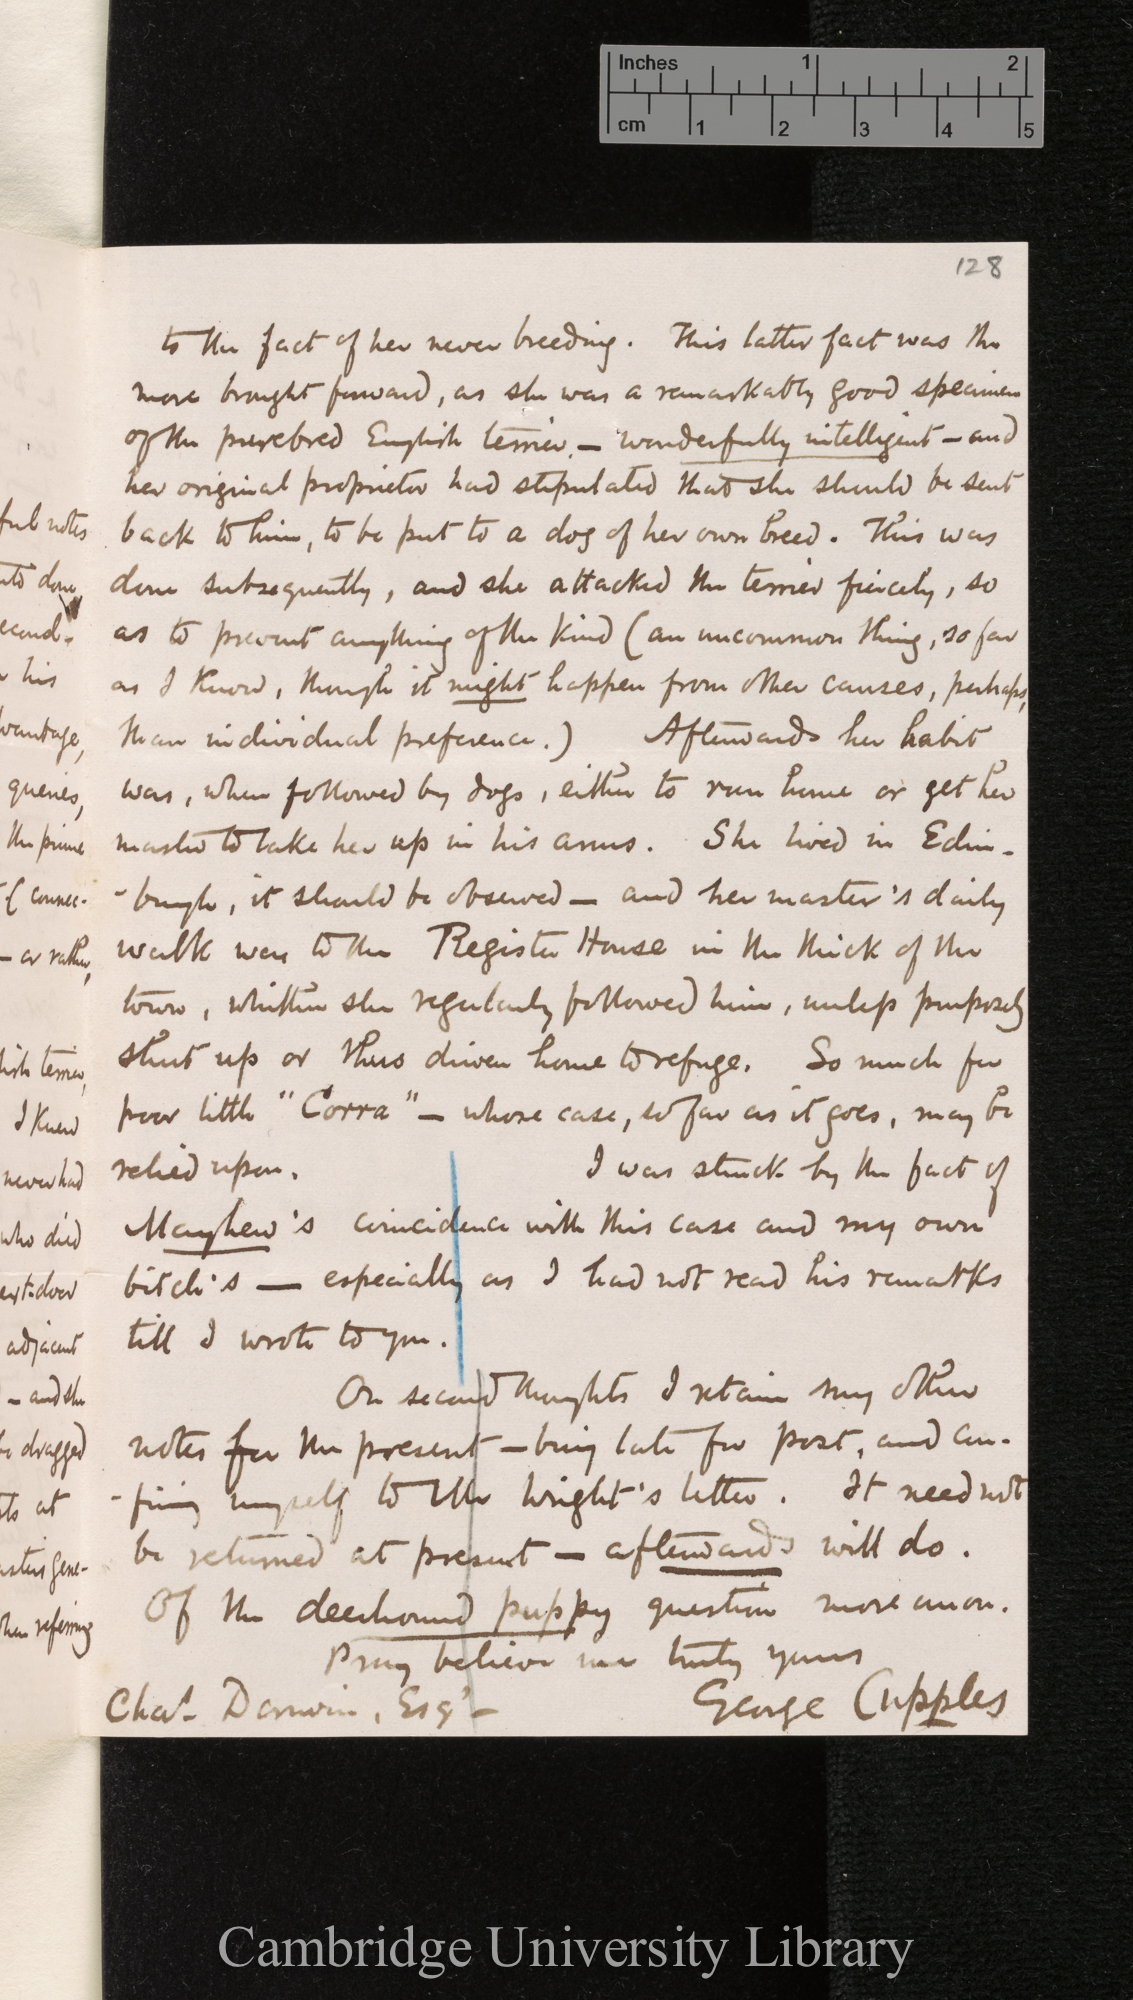 Inches 1 2
cm 1 2 3 4 5
128
to the fact of her never breeding. This latter fact was the
more brought forward, as she was a remarkably good specimen
of the purebred English terrier, — wonderfully intelligent — and
her original proprietor had stipulated that she should be sent
back to him, to be put to a dog of her own breed. This was
done subsequently, and she attacked the terrier fiercely, so
as to prevent anything of the kind (an uncommon thing, so far
as I know, though it might happen from other causes, perhaps,
than individual preference.) Afterwards her habit
was, when followed by dogs, either to run home or get her
master to take her up in his arms. She lived in Edin-
-burgh, it should be observed — and her master's daily
walk was to the Register House in the thick of the
town, whither she regularly followed him, unless purposely
shut up or thus driven home to refuge. So much for
poor little "Corra" — whose case, so far as it goes, may be
relied upon. I was struck by the fact of
Mayhew's coincidence with this case and my own
bitch's — especially as I had not read his remarks
till I wrote to you.
On second thoughts I retain my other
notes for the present — being late for post, and con-
-fining myself to Mr Wright's letter. It need not
be returned at present — afterwards will do.
Of the deerhound puppy question more anon.
Pray believe me truly yours
George Cupples
Chas. Darwin, Esqr —
ful notes
to done,
second-
his
advantage,
queries,
the prime
( connec-
— or rather,
lish terrier,
I knew
never had
who died
next-door
adjacent
— and she
be dragged
at
Gene-
then referring
Cambridge University Library